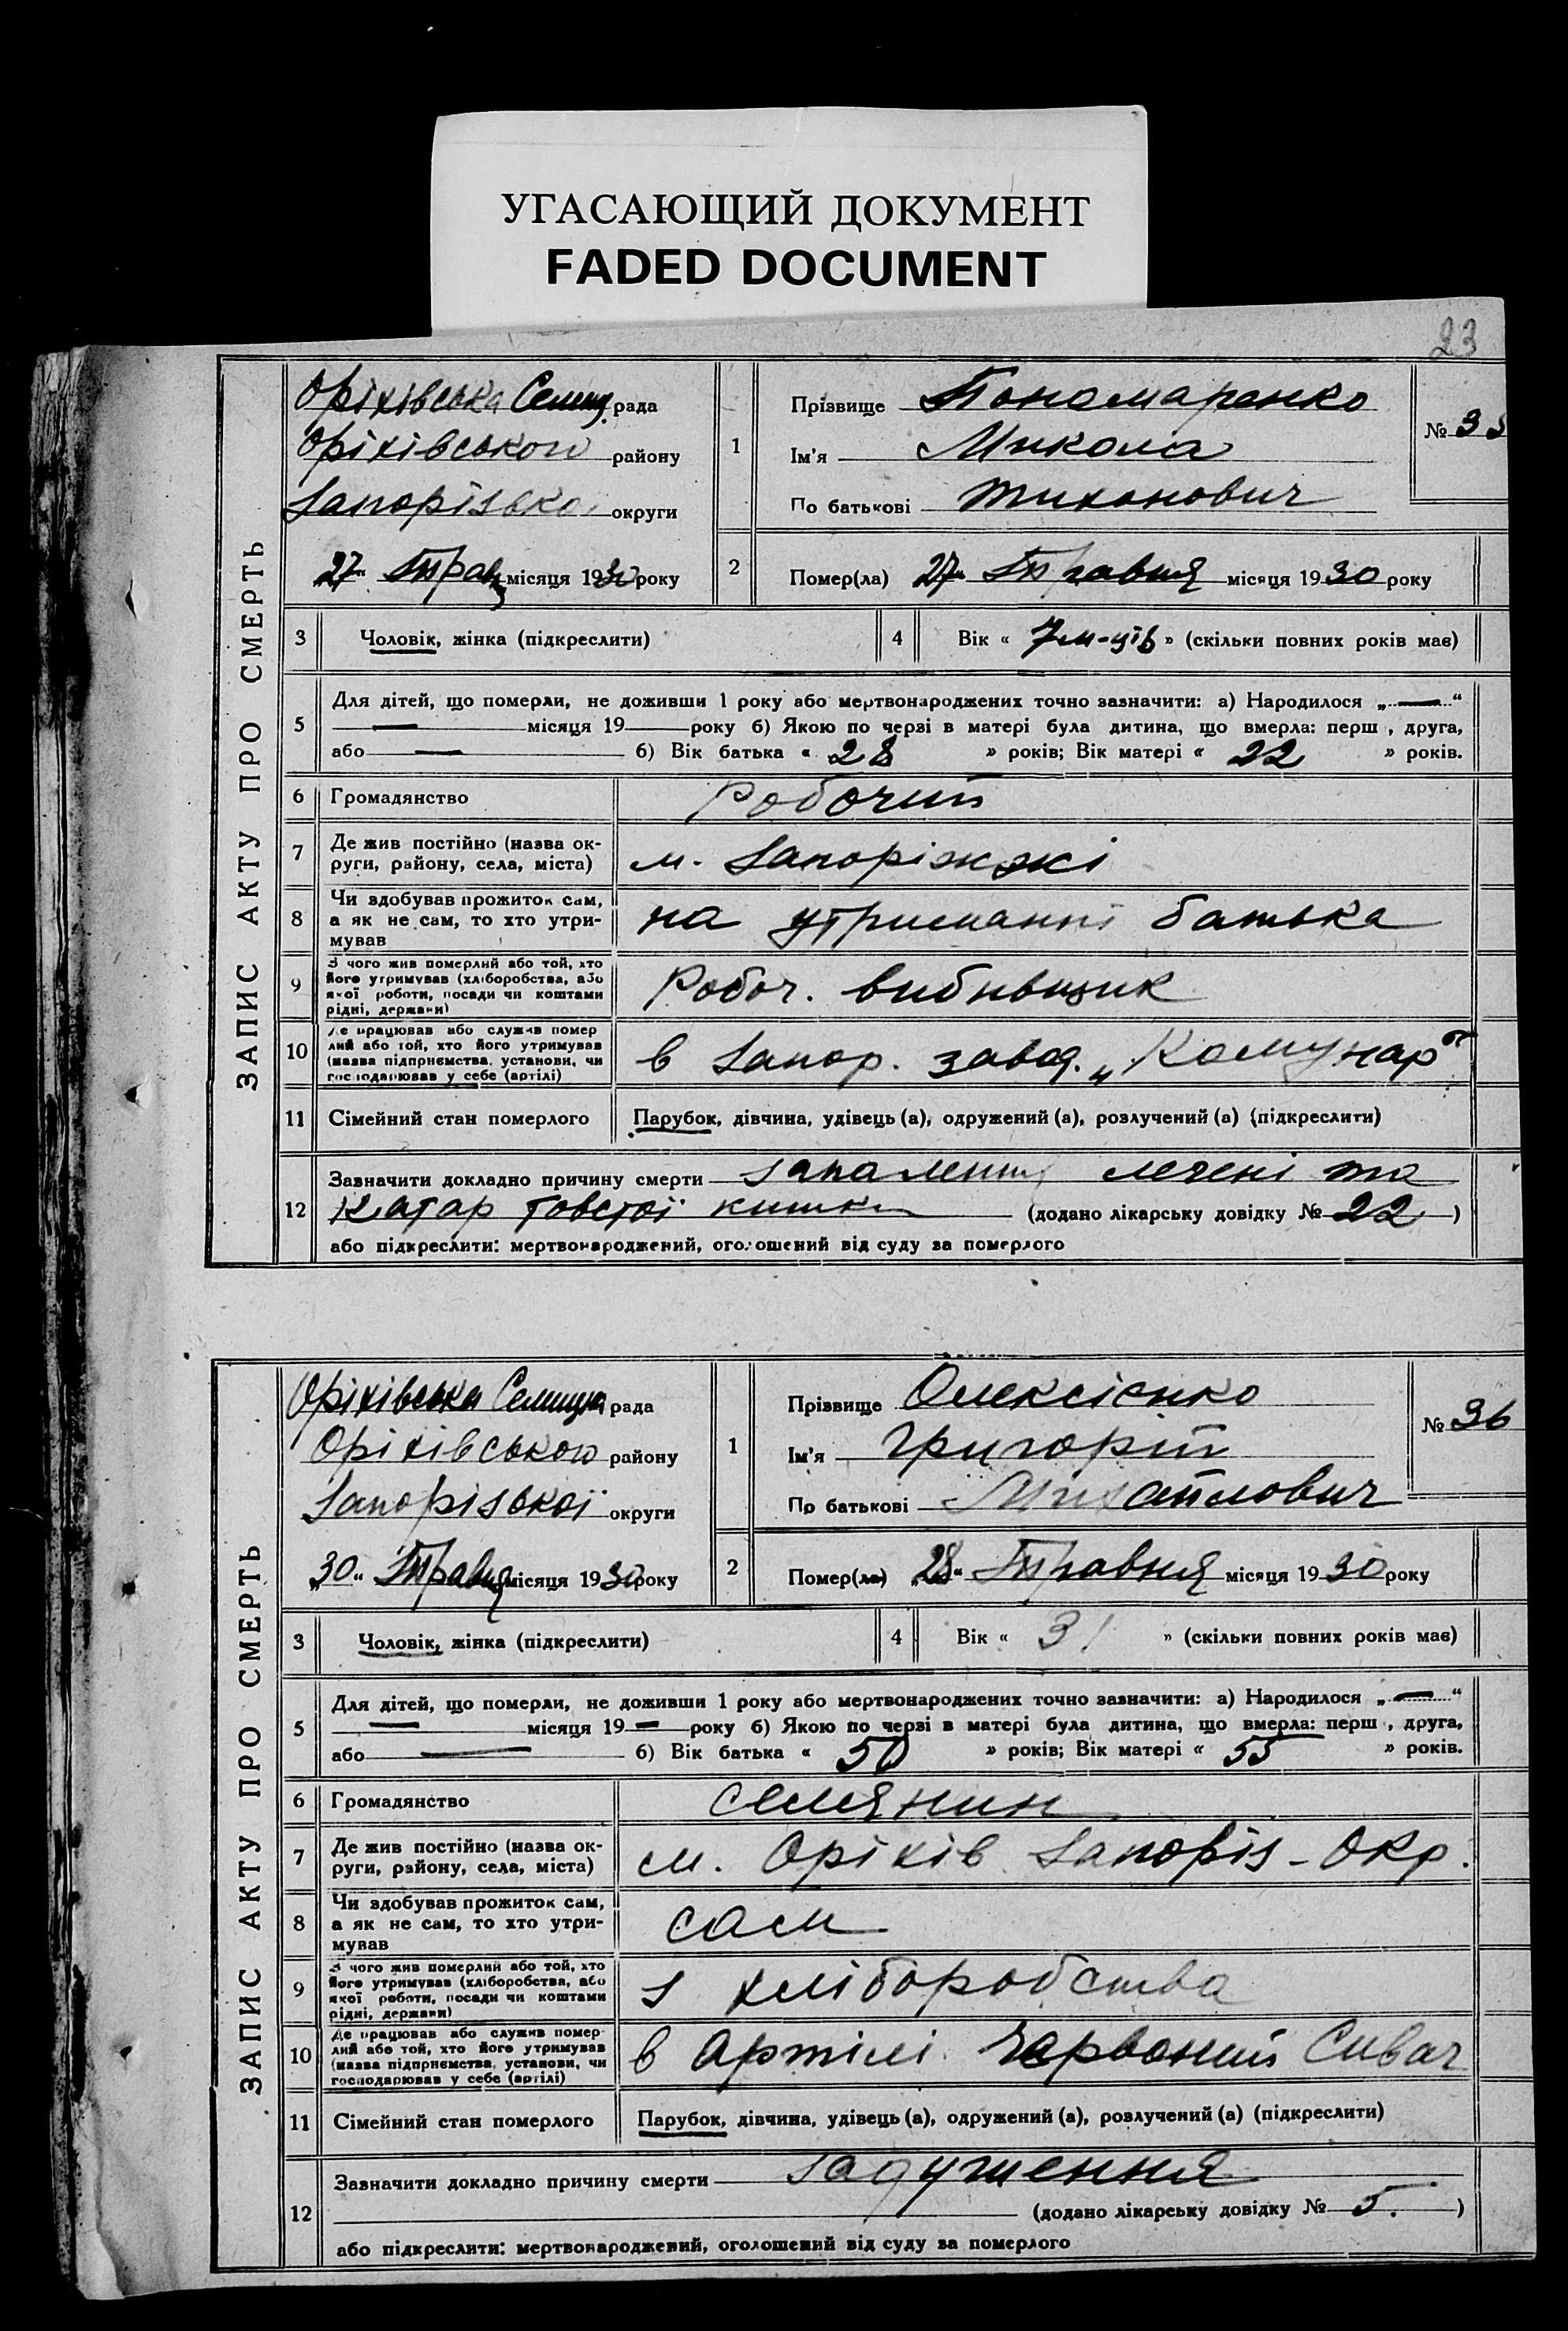 УГАСАЮЩИЙ ДОКУМЕНТ
FADED DOCUMENT
23
ЗАПИС АКТУ ПРО СМЕРТЬ
Оріхівська Селищ. рада
Оріхівського району
Запорізько округи
27 Травн місяця 1930 року
1
Прізвище Пономаренко
Ім'я Микола
По батькові Тихонович
№ 35
2
Помер(ла) 27 Травня місяця 1930 року
3 Чоловік, жінка (підкреслити)
4 Вік « 7 м-ців » (скільки повних років має)
5
Для дітей, що померли, не доживши 1 року або мертвонароджених точно зазначити: а) Народилося „ — “
— місяця 19 року б) Якою по черзі в матері була дитина, що вмерла: перш , друга,
або — б) Вік батька « 28 » років; Вік матері « 22 » років.
6 Громадянство Робочий
7
Де жив постійно (назва ок-
руги, району, села, міста)
м. Запоріжжі
8
Чи здобував прожиток сам,
а як не сам, то хто утри-
мував
на утриманні батька
9
З чого жив померлий або той, хто
його утримував (хліборобства, або
якої роботи, посади чи коштами
рідні, держави)
Робоч. вибивщик
10
Де працював або служив помер
лий або той, хто його утримував
(назва підприємства, установи, чи
господарював у себе (артілі)
в Запор. завод. „Комунар“
11 Сімейний стан померлого Парубок, дівчина, удівець (а), одружений (а), розлучений (а) (підкреслити)
12
Зазначити докладно причину смерти запалення легені та
Катар товстої кишки (додано лікарську довідку № 22 )
або підкреслити: мертвонароджений, оголошений від суду за померлого
ЗАПИС АКТУ ПРО СМЕРТЬ
Оріхівська Селищна рада
Оріхівського району
Запорізької округи
„30“ Травня місяця 1930 року
1
Прізвище Олексієнко
Ім'я Григорій
По батькові Михайлович
№ 36
2
Помер(ла) „28“ Травня місяця 1930 року
3 Чоловік, жінка (підкреслити)
4 Вік « 31 » (скільки повних років має)
5
Для дітей, що померли, не доживши 1 року або мертвонароджених точно зазначити: а) Народилося „ — “
— місяця 19 — року б) Якою по черзі в матері була дитина, що вмерла: перш , друга,
або — б) Вік батька « 50 » років; Вік матері « 55 » років.
6 Громадянство селянин
7
Де жив постійно (назва ок-
руги, району, села, міста)
м. Оріхів Запоріз-Окр.
8
Чи здобував прожиток сам,
а як не сам, то хто утри-
мував
сам
9
З чого жив померлий або той, хто
його утримував (хліборобства, або
якої роботи, посади чи коштами
рідні, держави)
з хліборобства
10
Де працював або служив помер-
лий або той, хто його утримував
(назва підприємства, установи, чи
господарював у себе (артілі)
в Артілі Червоний Сивач
11 Сімейний стан померлого Парубок, дівчина, удівець (а), одружений (а), розлучений (а) (підкреслити)
12
Зазначити докладно причину смерти задушення
(додано лікарську довідку № 5. )
або підкреслити: мертвонароджений, оголошений від суду за померлого